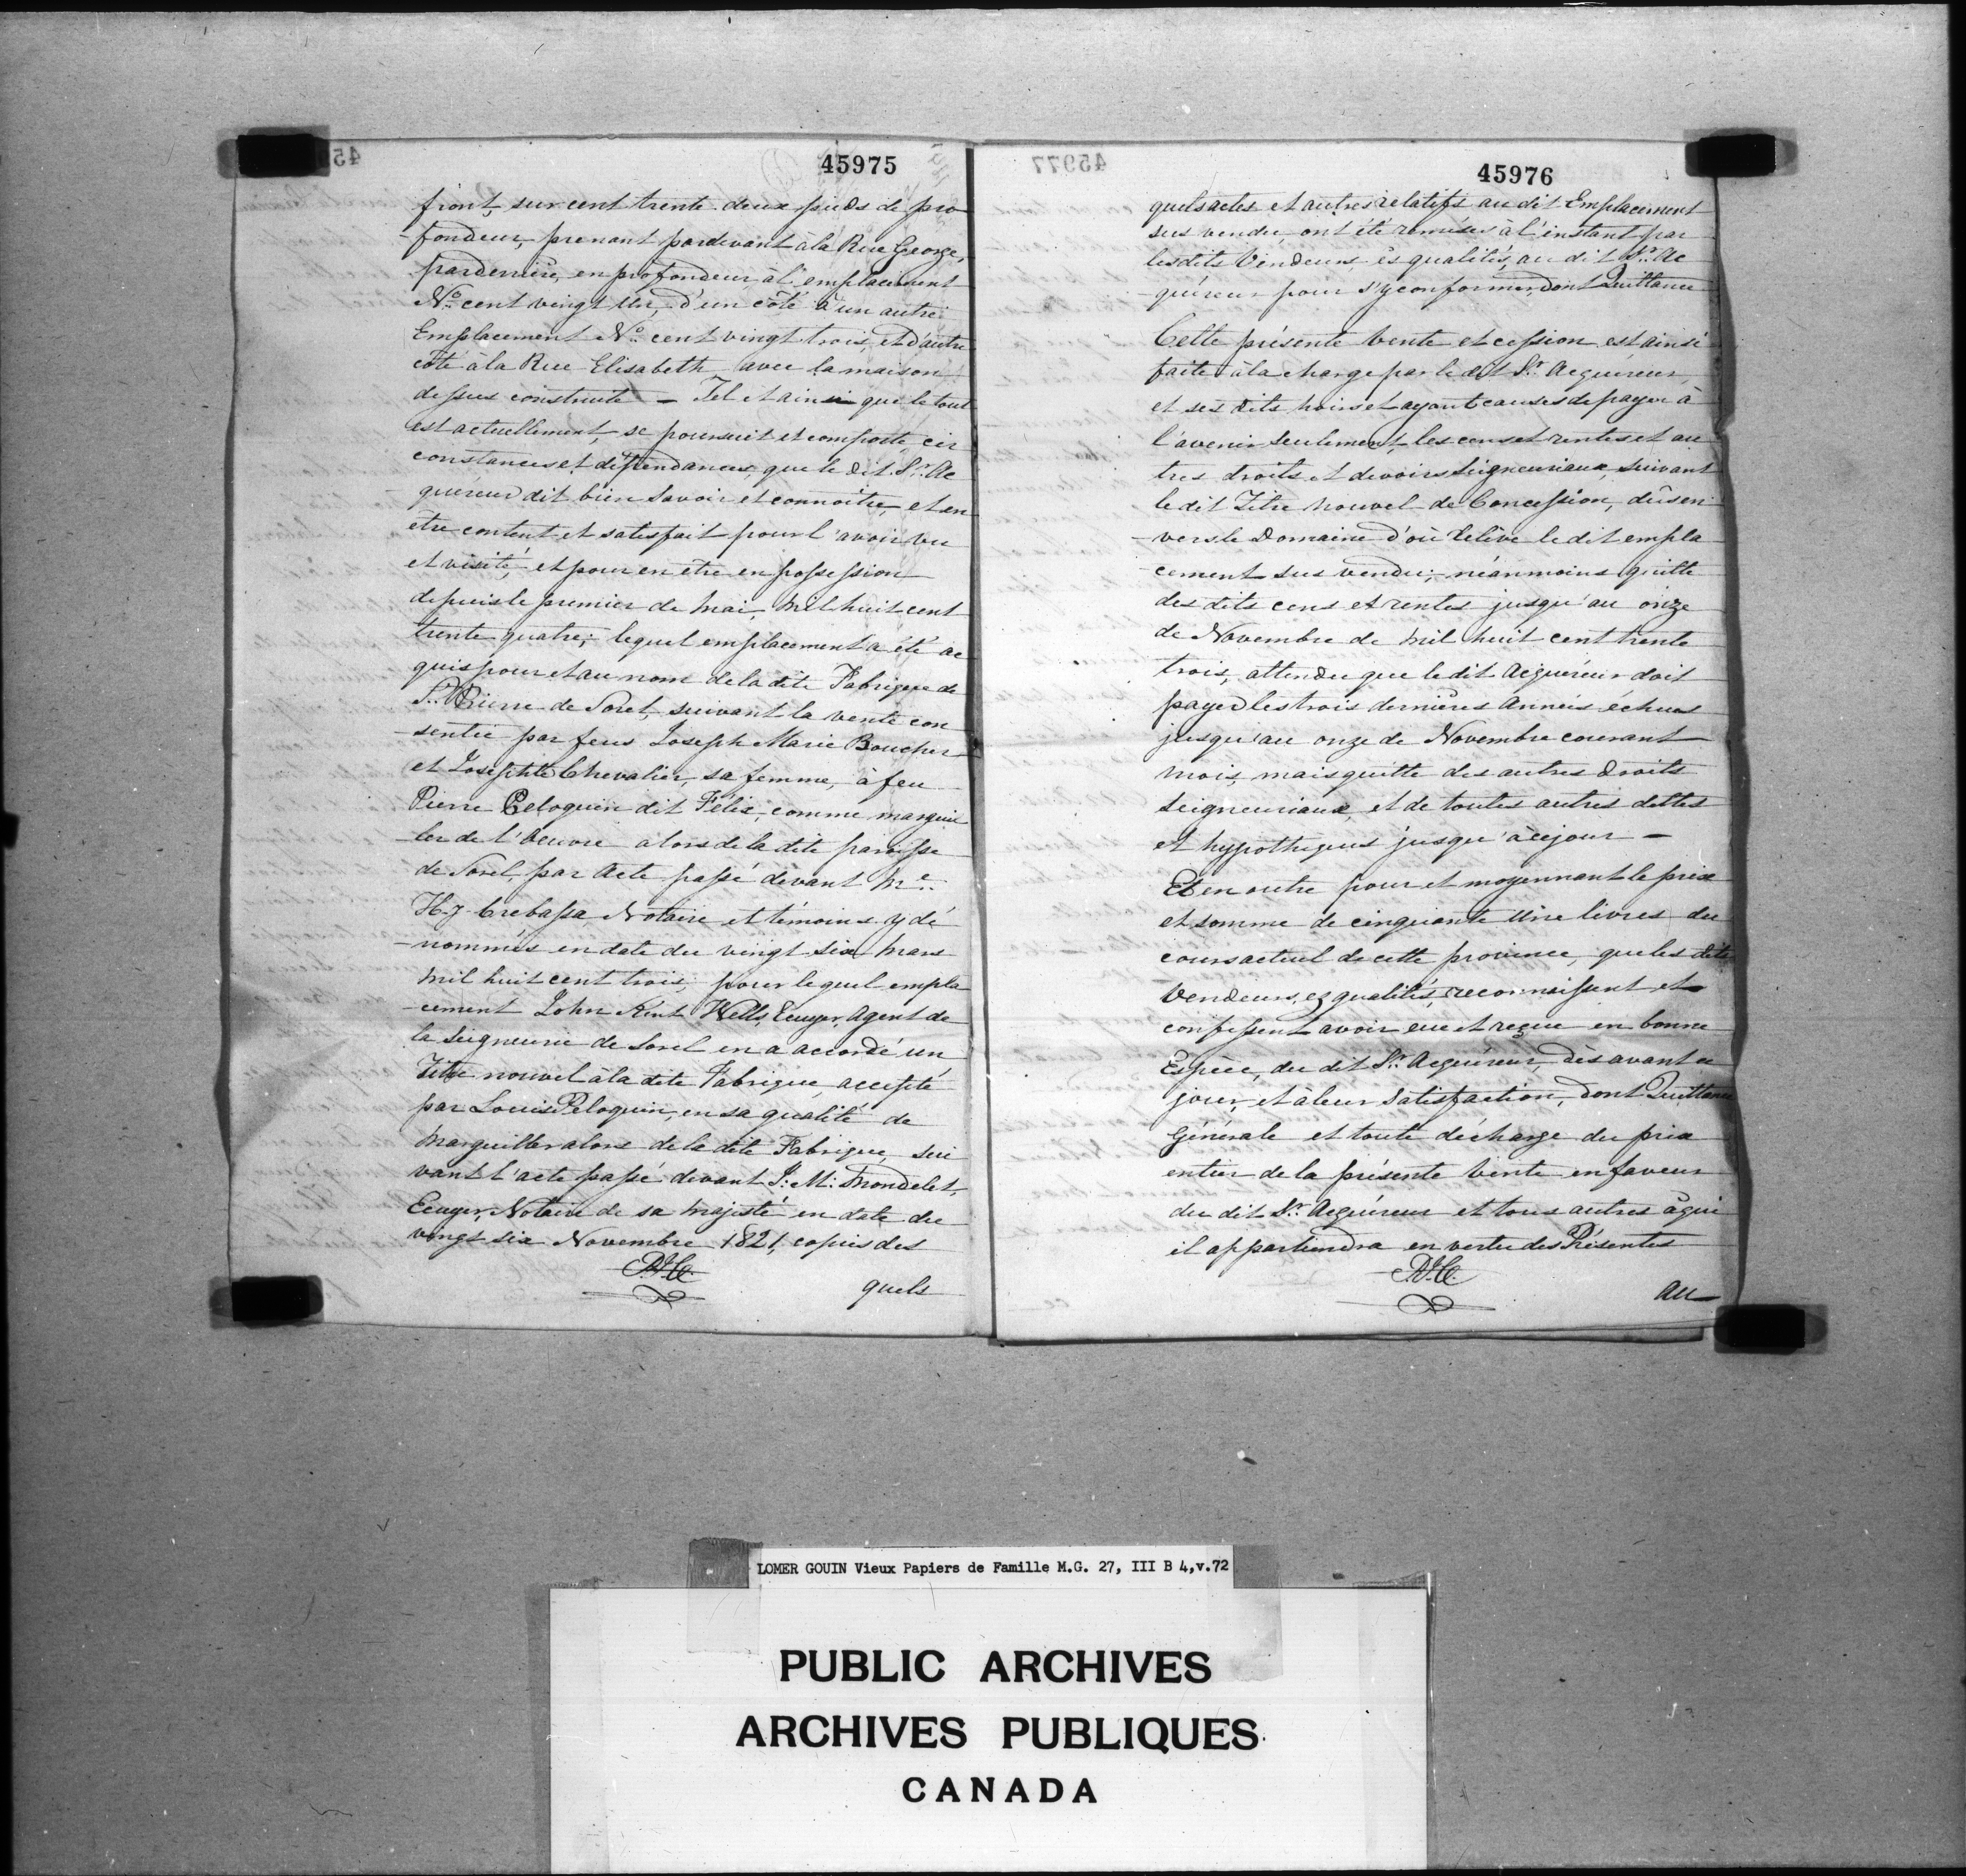 45975
front, sur cent trente deux pieds de pro
-fondeur, prenant pardevant à la Rue George,
parderrière, en profondeur, à l'emplacement
No. cent vingt un, d'un côté à un autre
Emplacement No. cent vingt trois, et d'autre
côté à la Rue Elisabeth avec la maison
dessus construite — Tel et ainsi que le tout
est actuellement, se poursuit et comporte, cir
constances et dépendances, que le dit Sr. Ac
quéreur dit bien savoir et connoître, et en
être content et satisfait pour l'avoir vu
et visité, et pour en être en possession
depuis le premier de mai, mil huit cent
trente quatre; lequel emplacement a été ac
quis pour et au nom de la dite Fabrique de
St. Pierre de Sorel, suivant la vente con
-sentie par feus Joseph Marie Boucher
et Josephte Chevalier, sa femme, à feu
Pierre Peloquin dit Félix, comme marguil
-ler de l'Oeuvre alors de la dite paroisse
de Sorel, par Acte passé devant Me.
H. J. Crebassa Notaire et témoins y dé
-nommés en date du vingt six Mars
mil huit cent trois; pour lequel empla
-cement John Kent Wells, Ecuyer, Agent de
la Seigneurie de Sorel en a accordé un
Titre nouvel à la dite Fabrique, accepté
par Louis Peloquin, en sa qualité de
Marguiller alors de la dite Fabrique, sui
vant l'acte passé devant J: M: Mondelet,
Ecuyer, Notaire de sa Majesté en date du
vingt six Novembre 1821, copies des
quels
45976
quels actes et autres relatifs au dit Emplacement
sus vendu, ont été remises à l'instant par
les dits Vendeurs, ès qualités, au dit Sr. Ac
-quéreur pour s'y conformer, dont Quittance
Cette présente Vente et cession est ainsi
faite à la charge par le dit Sr. Acquéreur,
et ses dits hoirs et ayant causes de payer à
l'avenir seulement, les cens et rentes et au
tres droits et devoirs Seigneuriaux, suivant
le dit Titre nouvel de Concession, dûs en
-vers le Domaine d'où relève le dit empla
-cement sus vendu; néanmoins quitte
des dits cens et rentes jusqu'au onze
de Novembre de mil huit cent trente
trois, attendu que le dit Acquéreur doit
payer les trois dernières Années échues
jusqu'au onze de Novembre courant
mois, mais quitte des autres droits
Seigneuriaux, et de toutes autres dettes
et hypothèques jusqu'à ce jour —
Et en outre pour et moyennant le prix
et somme de cinquante une livres du
cours actuel de cette province, que les dits
Vendeurs, ez qualités, reconnoissent et
confessent avoir eue et reçue en bonne
Espèce, du dit Sr. Acquéreur, dès avant ce
jour, et à leur Satisfaction, dont Quittance
Générale et toute décharge du prix
entier de la présente Vente en faveur
du dit Sr. Acquéreur et tous autres à qui
il appartiendra en vertu des Présentes
au
LOMER GOUIN Vieux Papiers de Famille M.G. 27, III B 4,v.72
PUBLIC ARCHIVES
ARCHIVES PUBLIQUES
CANADA